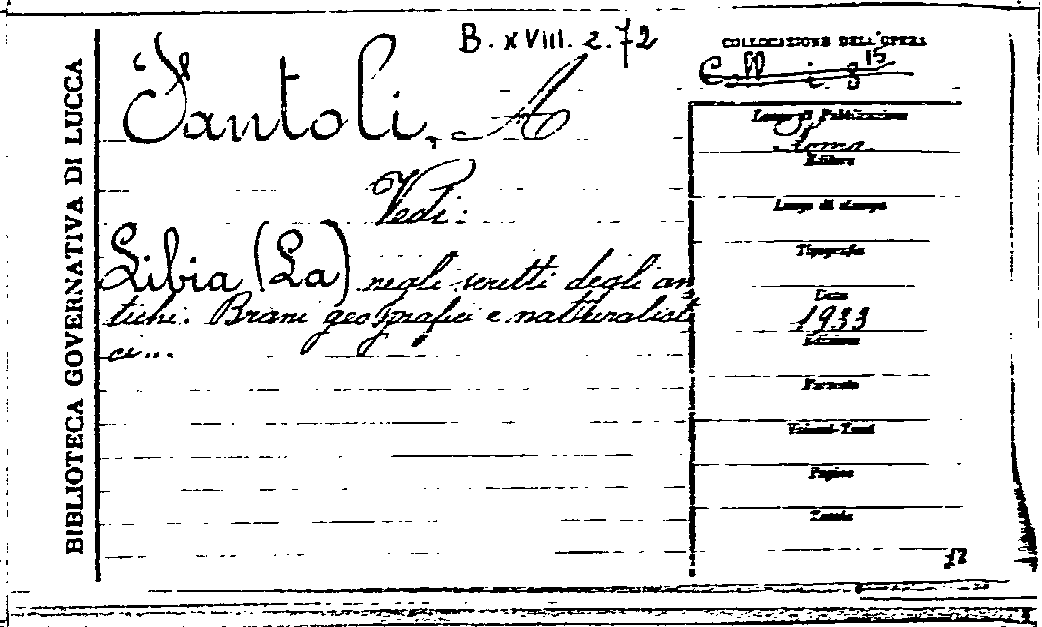 BIBLIOTECA GOVERNATIVA DI LUCCA
B. XVIII. 2. 72
Fantoli, A
Vedi:
Libia (La) negli scritti degli an
tichi. Brani geografici e naturalisti
ci...
COLLOCAZIONE DELL'OPERA
Luogo di Pubblicazione
Roma
Editore
Luogo di stampa
Tipografia
Data
1933
Edizione
Formato
Volumi-Tomi
Pagine
Tavole